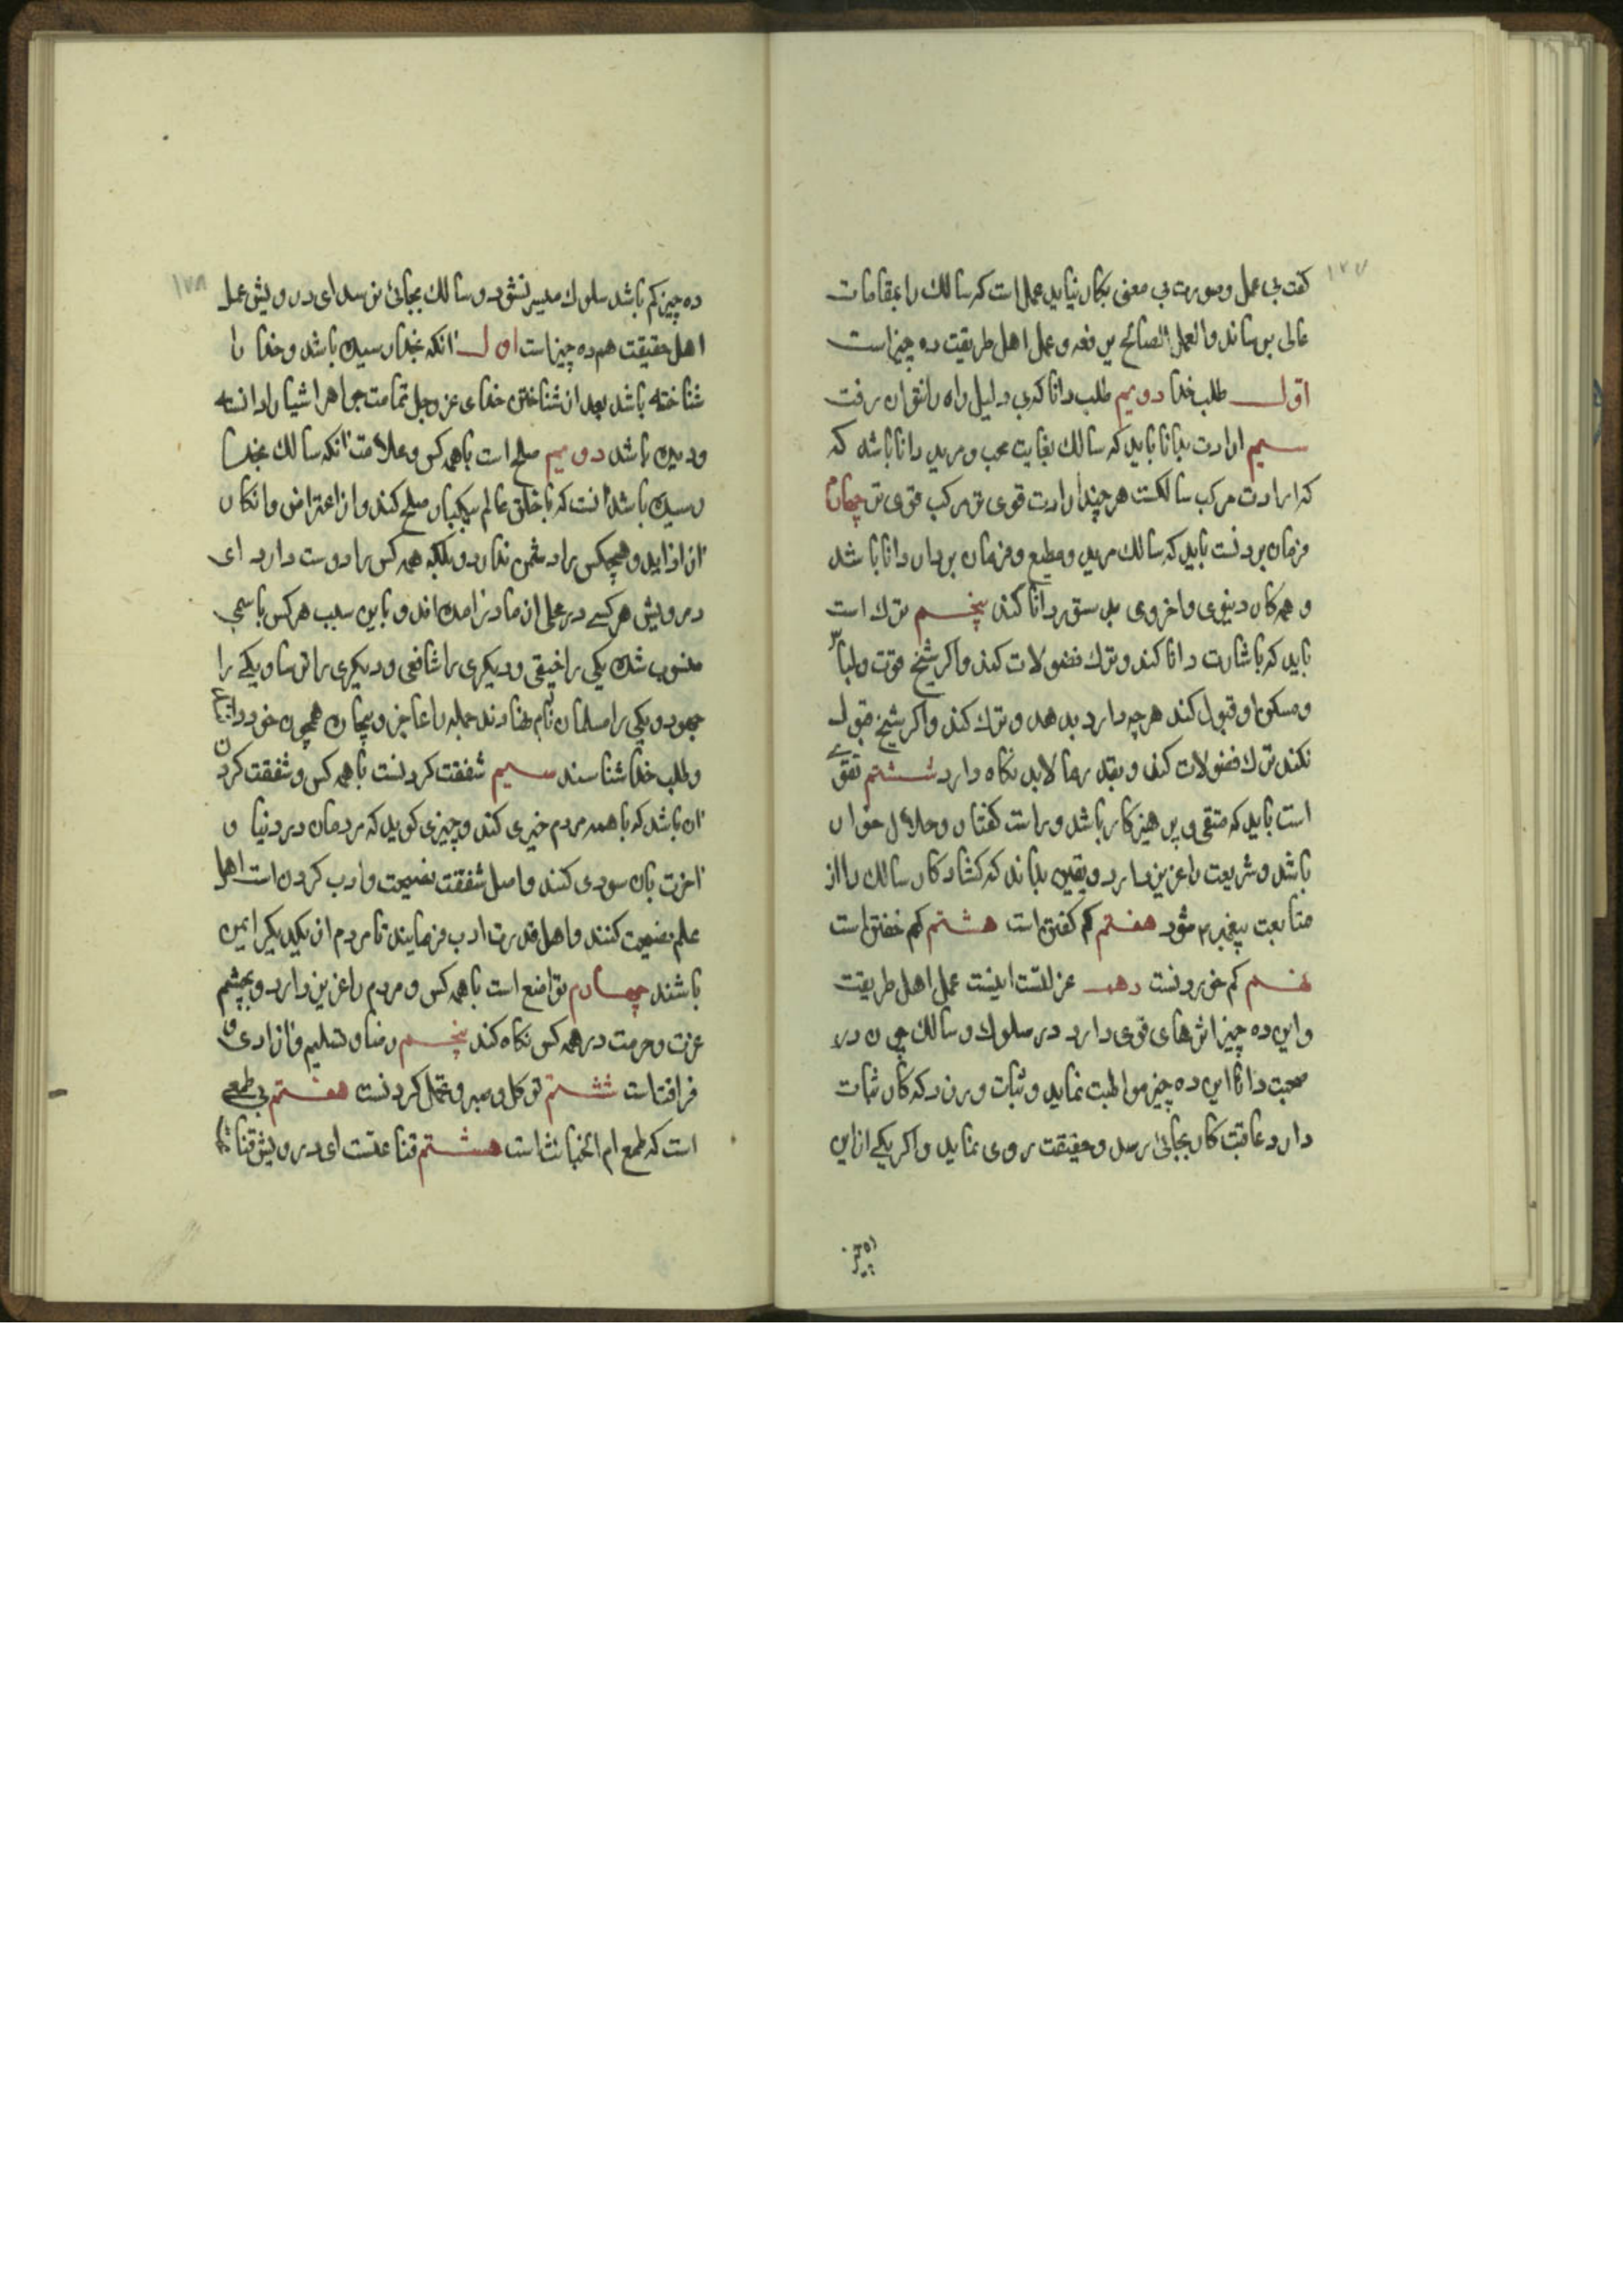 ۱۷۷
کفت بی عمل و صورت بی معنی بکار نیاید عمل است که سالك را بمقامات
عالی برساند والعمل الصالح یرفعه و عمل اهل طریقت ده چیز است
اول طلب خدا دویم طلب دانا که بی دلیل راه را نتوان رفت
سیم ارادت بدانا باید که سالك بغایت محب و مرید دانا باشد که
که ارادت مرکب سالکست هر چند ارادت قوی تر مرکب قوی تر چهارم
فرمان بردنست باید که سالك مرید و مطیع و فرمان بردار دانا باشد
و همه کار دنیوی و اخروی بدستور دانا کند پنجم ترك است
باید که باشارت دانا کند و ترك فضولات کند و اکر شیخ قوت و لباس
و مسکن او قبول کند هر چه دارد بدهد و ترك کند و اکر شیخ قبول
نکند ترك فضولات کند و بقدر مالابد نکاه دارد ششم تقوی
است باید که متقی و پرهیزکار باشد و راست کفتار و حلال خوار
باشد و شریعت را عزیز دارد و یقین بداند که کشاد کار سالك را از
متابعت پیغمبر م شود هفتم کم کفتن است هشتم کم خفتن است
نهم کم خوردنست دهم عزلتست اینست عمل اهل طریقت
و این ده چیز اثرهای قوی دارد در سلوك و سالك چون در
صحبت دانا این ده چیز مواظبت نماید و ثبات ورزد که کار ثبات
دارد عاقبت کار بجائی رسد و حقیقت روی نماید و اکر یکی از این
ده چیز
۱۷۸
ده چیز کم باشد سلوك میسر نشود و سالك بجائی نرسد ای درویش عمل
اهل حقیقت هم ده چیز است اول آنکه بخدا رسیده باشد و خدا را
شناخته باشد بعد از شناختن خدای عز و جل تمامت جواهر اشیا را دانسته
و دیده باشد دویم صلح است با همه کس و علامت آنکه سالك بخدا
رسیده باشد آنست که با خلق عالم بیکبار صلح کند و از اعتراض و انکار
آزاد آید و هیچکس را دشمن ندارد و بلکه همه کس را دوست دارد ای
درویش هر کسی در عملی از مادر زاده اند و باین سبب هر کس باسمی
منسوب شده یکی را حنیفی و دیکری را شافعی و دیکری را ترسا و یکی را
جهود و یکی را مسلمان نام نهادند جمله را عاجز و بیچاره همچون خود دانند
و طلب خدا شناسند سیم شفقت کردنست با همه کس و شفقت کردن
آن باشد که با همه مردم خیری کند و چیزی کوید که مردمان در دنیا و
آخرت بآن سودی کنند و اصل شفقت نصیحت و ادب کردن است اهل
علم نصیحت کنند و اهل قدرت ادب فرمایند تا مردم از یکدیکر ایمن
باشند چهارم تواضع است با همه کس و مردم را عزیز دارد و بچشم
عزت و حرمت در همه کس نکاه کند پنجم رضا و تسلیم و آزادی و
فراغتست ششم توکل و صبر و تحمل کردنست هفتم بی طمعی
است که طمع ام الخبائث است هشتم قناعتست ای درویش قناعت